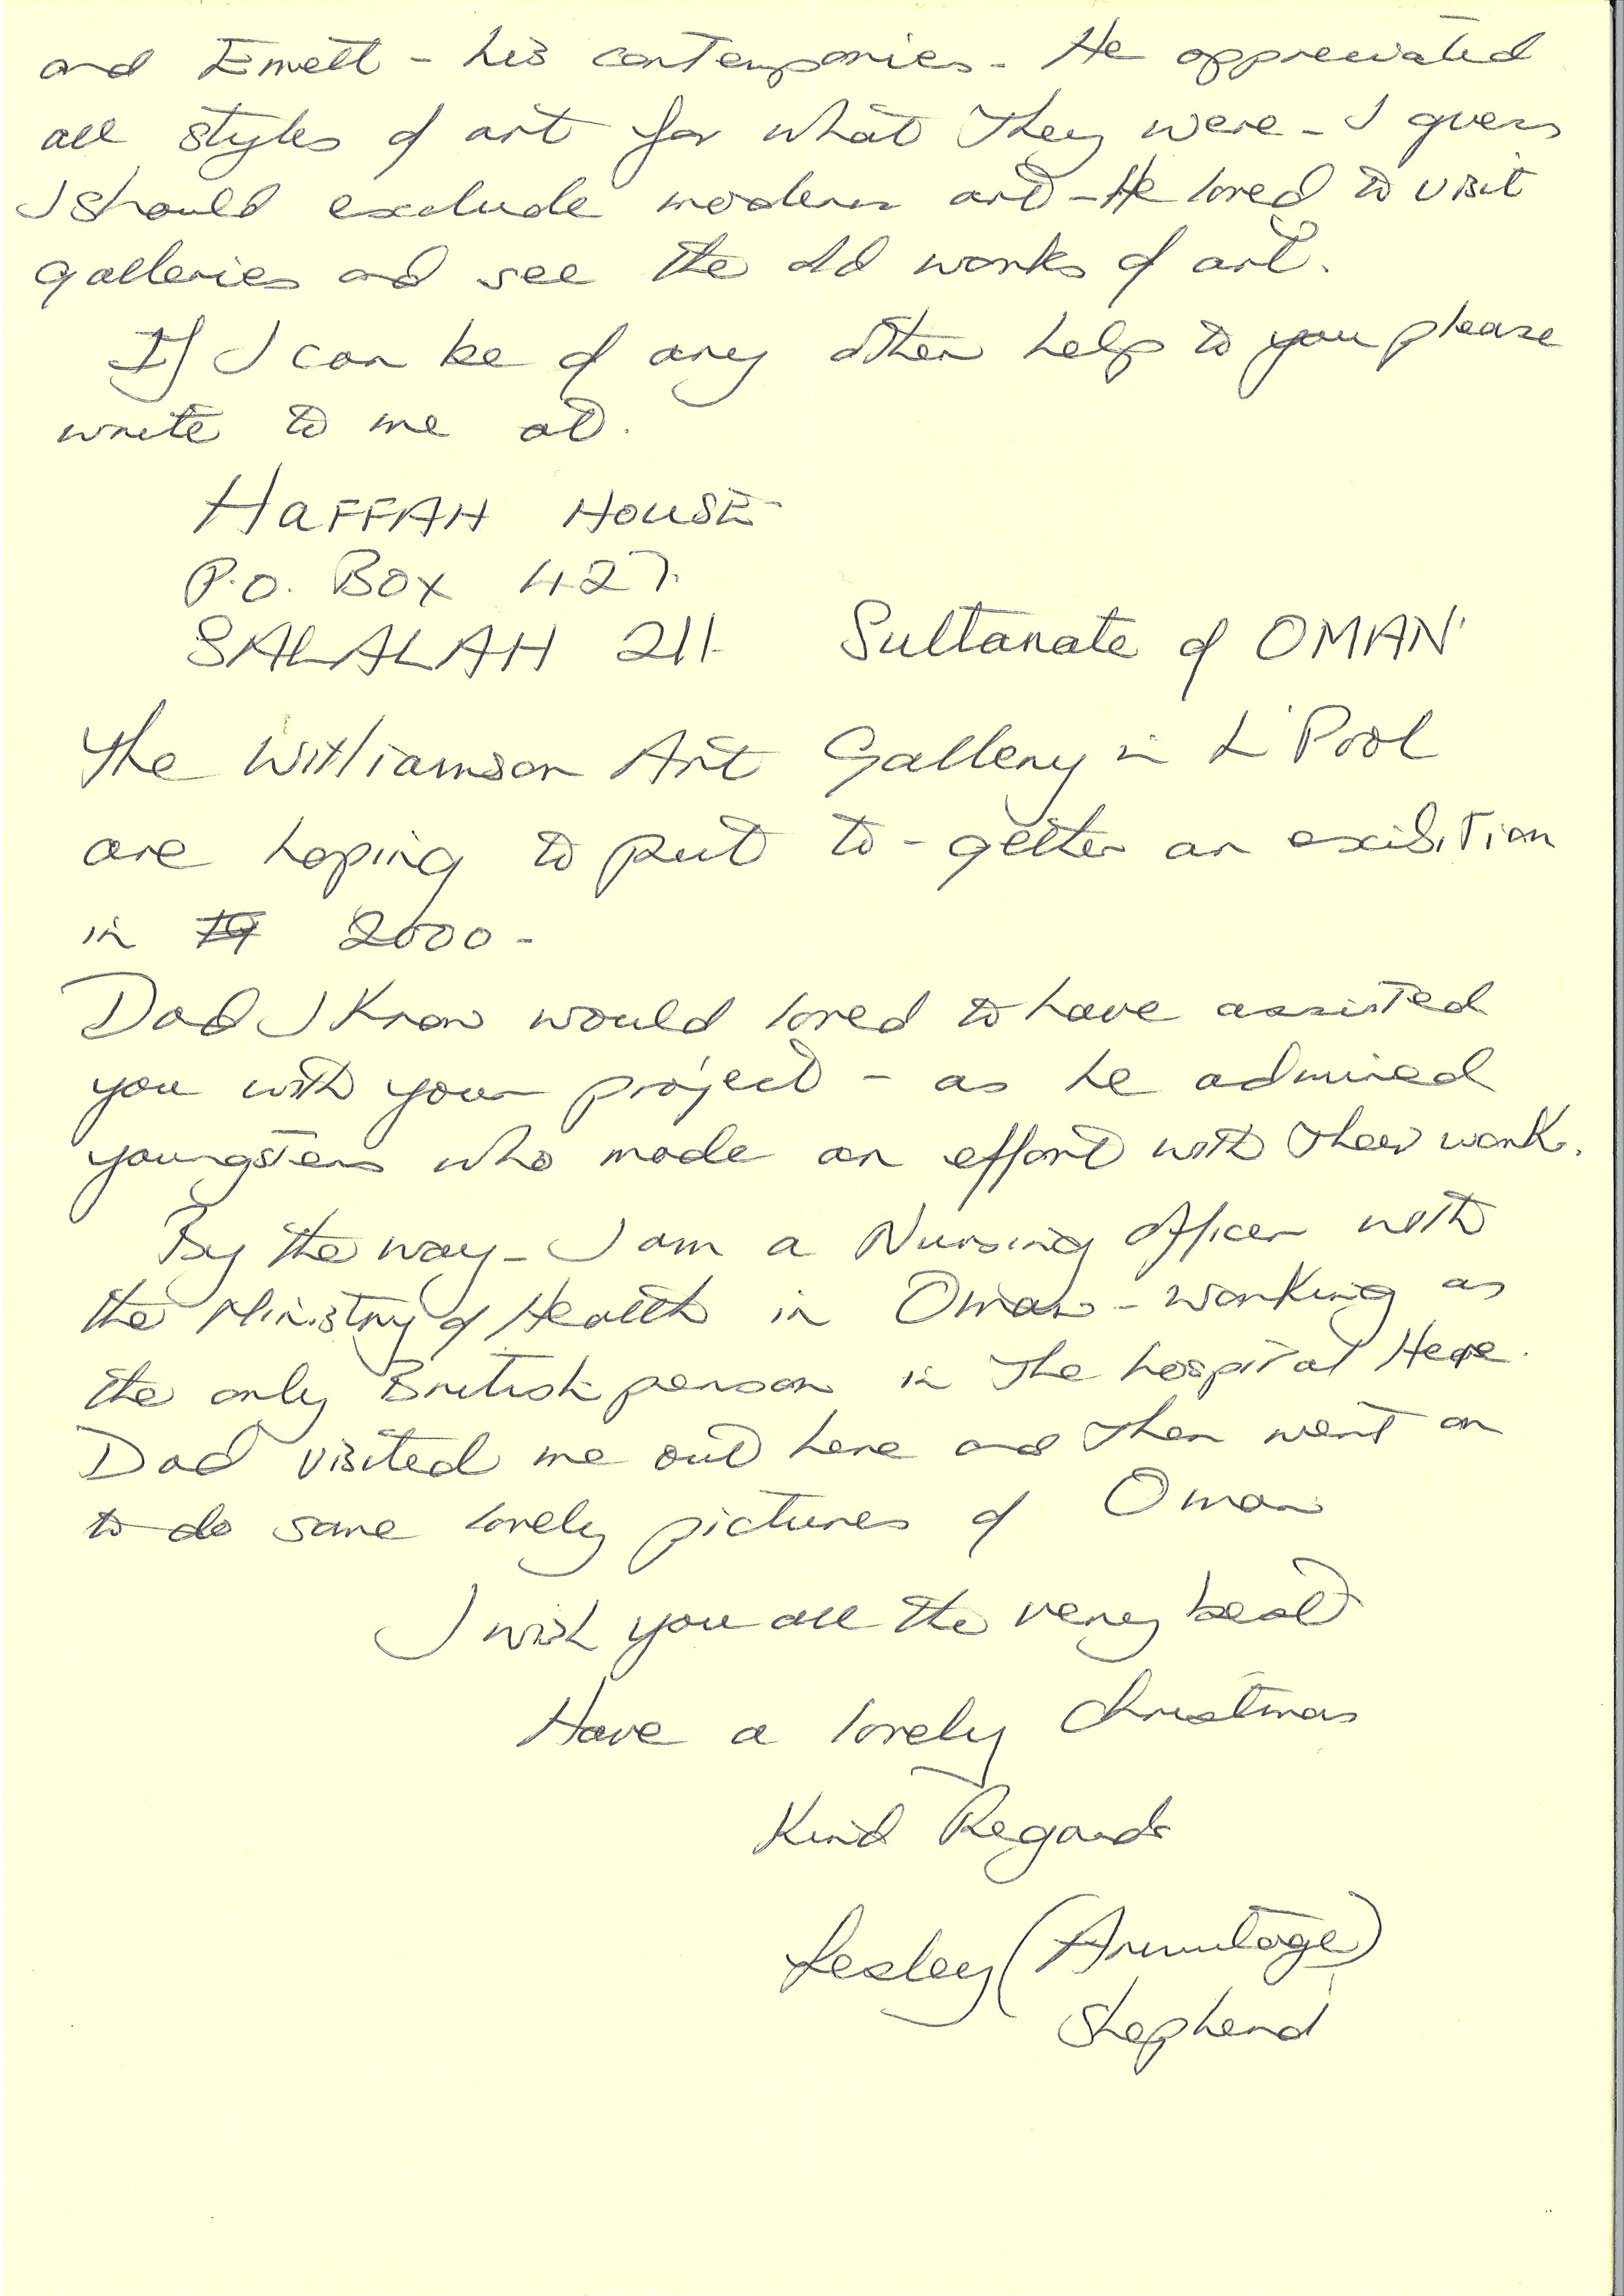 and Emett - his contemporaries - He appreciated
all styles of art for what they were - I guess
I should exclude modern art - He loved to visit
galleries and see the old works of art.
If I can be of any other help to you please
write to me at.
HAFFAH HOUSE
P.O. Box 427.
SALALAH 211. Sultanate of OMAN
The Williamson Art Gallery in L'Pool
are hoping to put to-gether an exibition
in 19 2000 -
Dad I know would loved to have assisted
you with your project - as he admired
youngsters who made an effort with their work.
By the way - I am a Nursing Officer with
the Ministry of Health in Oman - working as
the only British person in the hospital Here.
Dad visited me out here and then went on
to do some lovely pictures of Oman
I wish you all the very best
Have a lovely Christmas
Kind Regards
Lesley (Armitage)
Shepherd